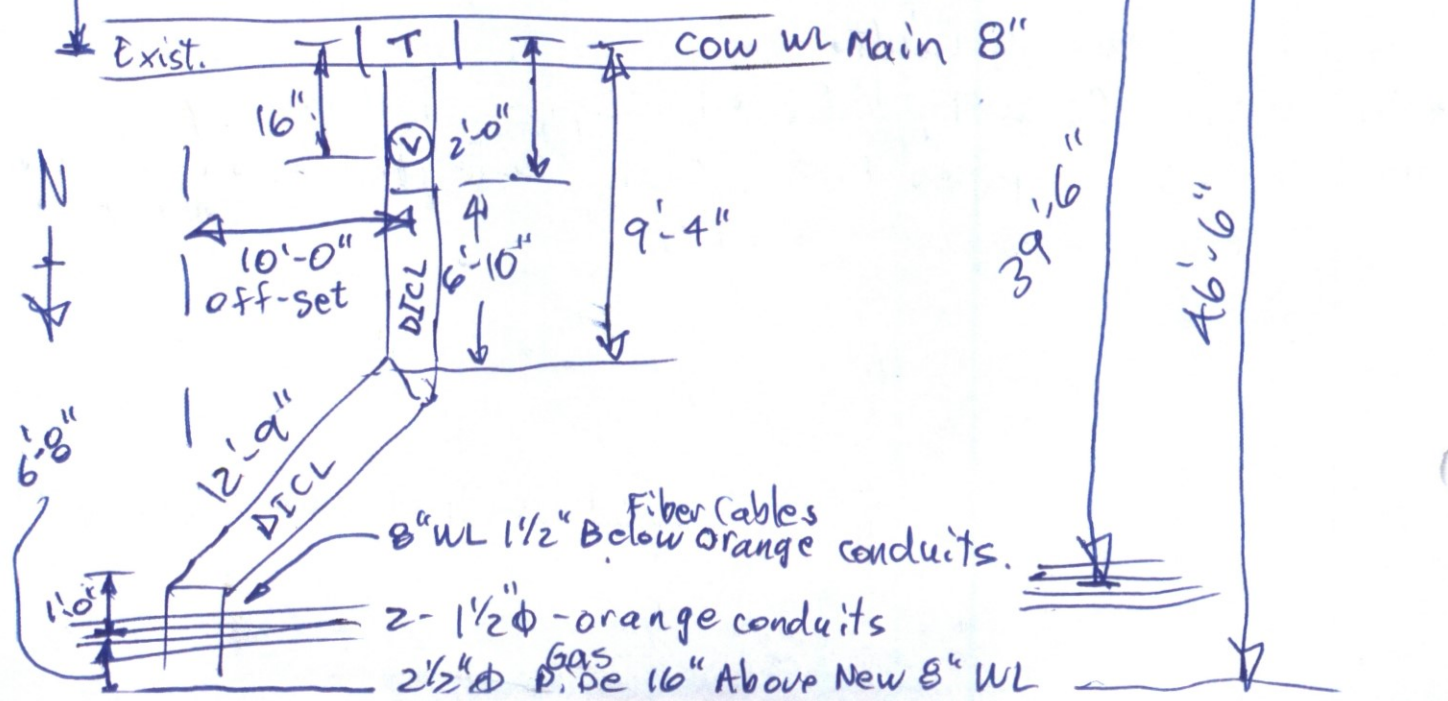 Exist. T COW WL Main 8"
16" V 2'-0"
N
10'-0"
off-set
DICL
6'-10"
9'-4"
39',6"
46'-6"
6'-8"
12'-9"
DICL
Fiber Cables
8"WL 1½" Below orange conduits.
1'0"
2- 1½"Φ -orange conduits
Gas
2½"Φ Pipe 16" Above New 8" WL